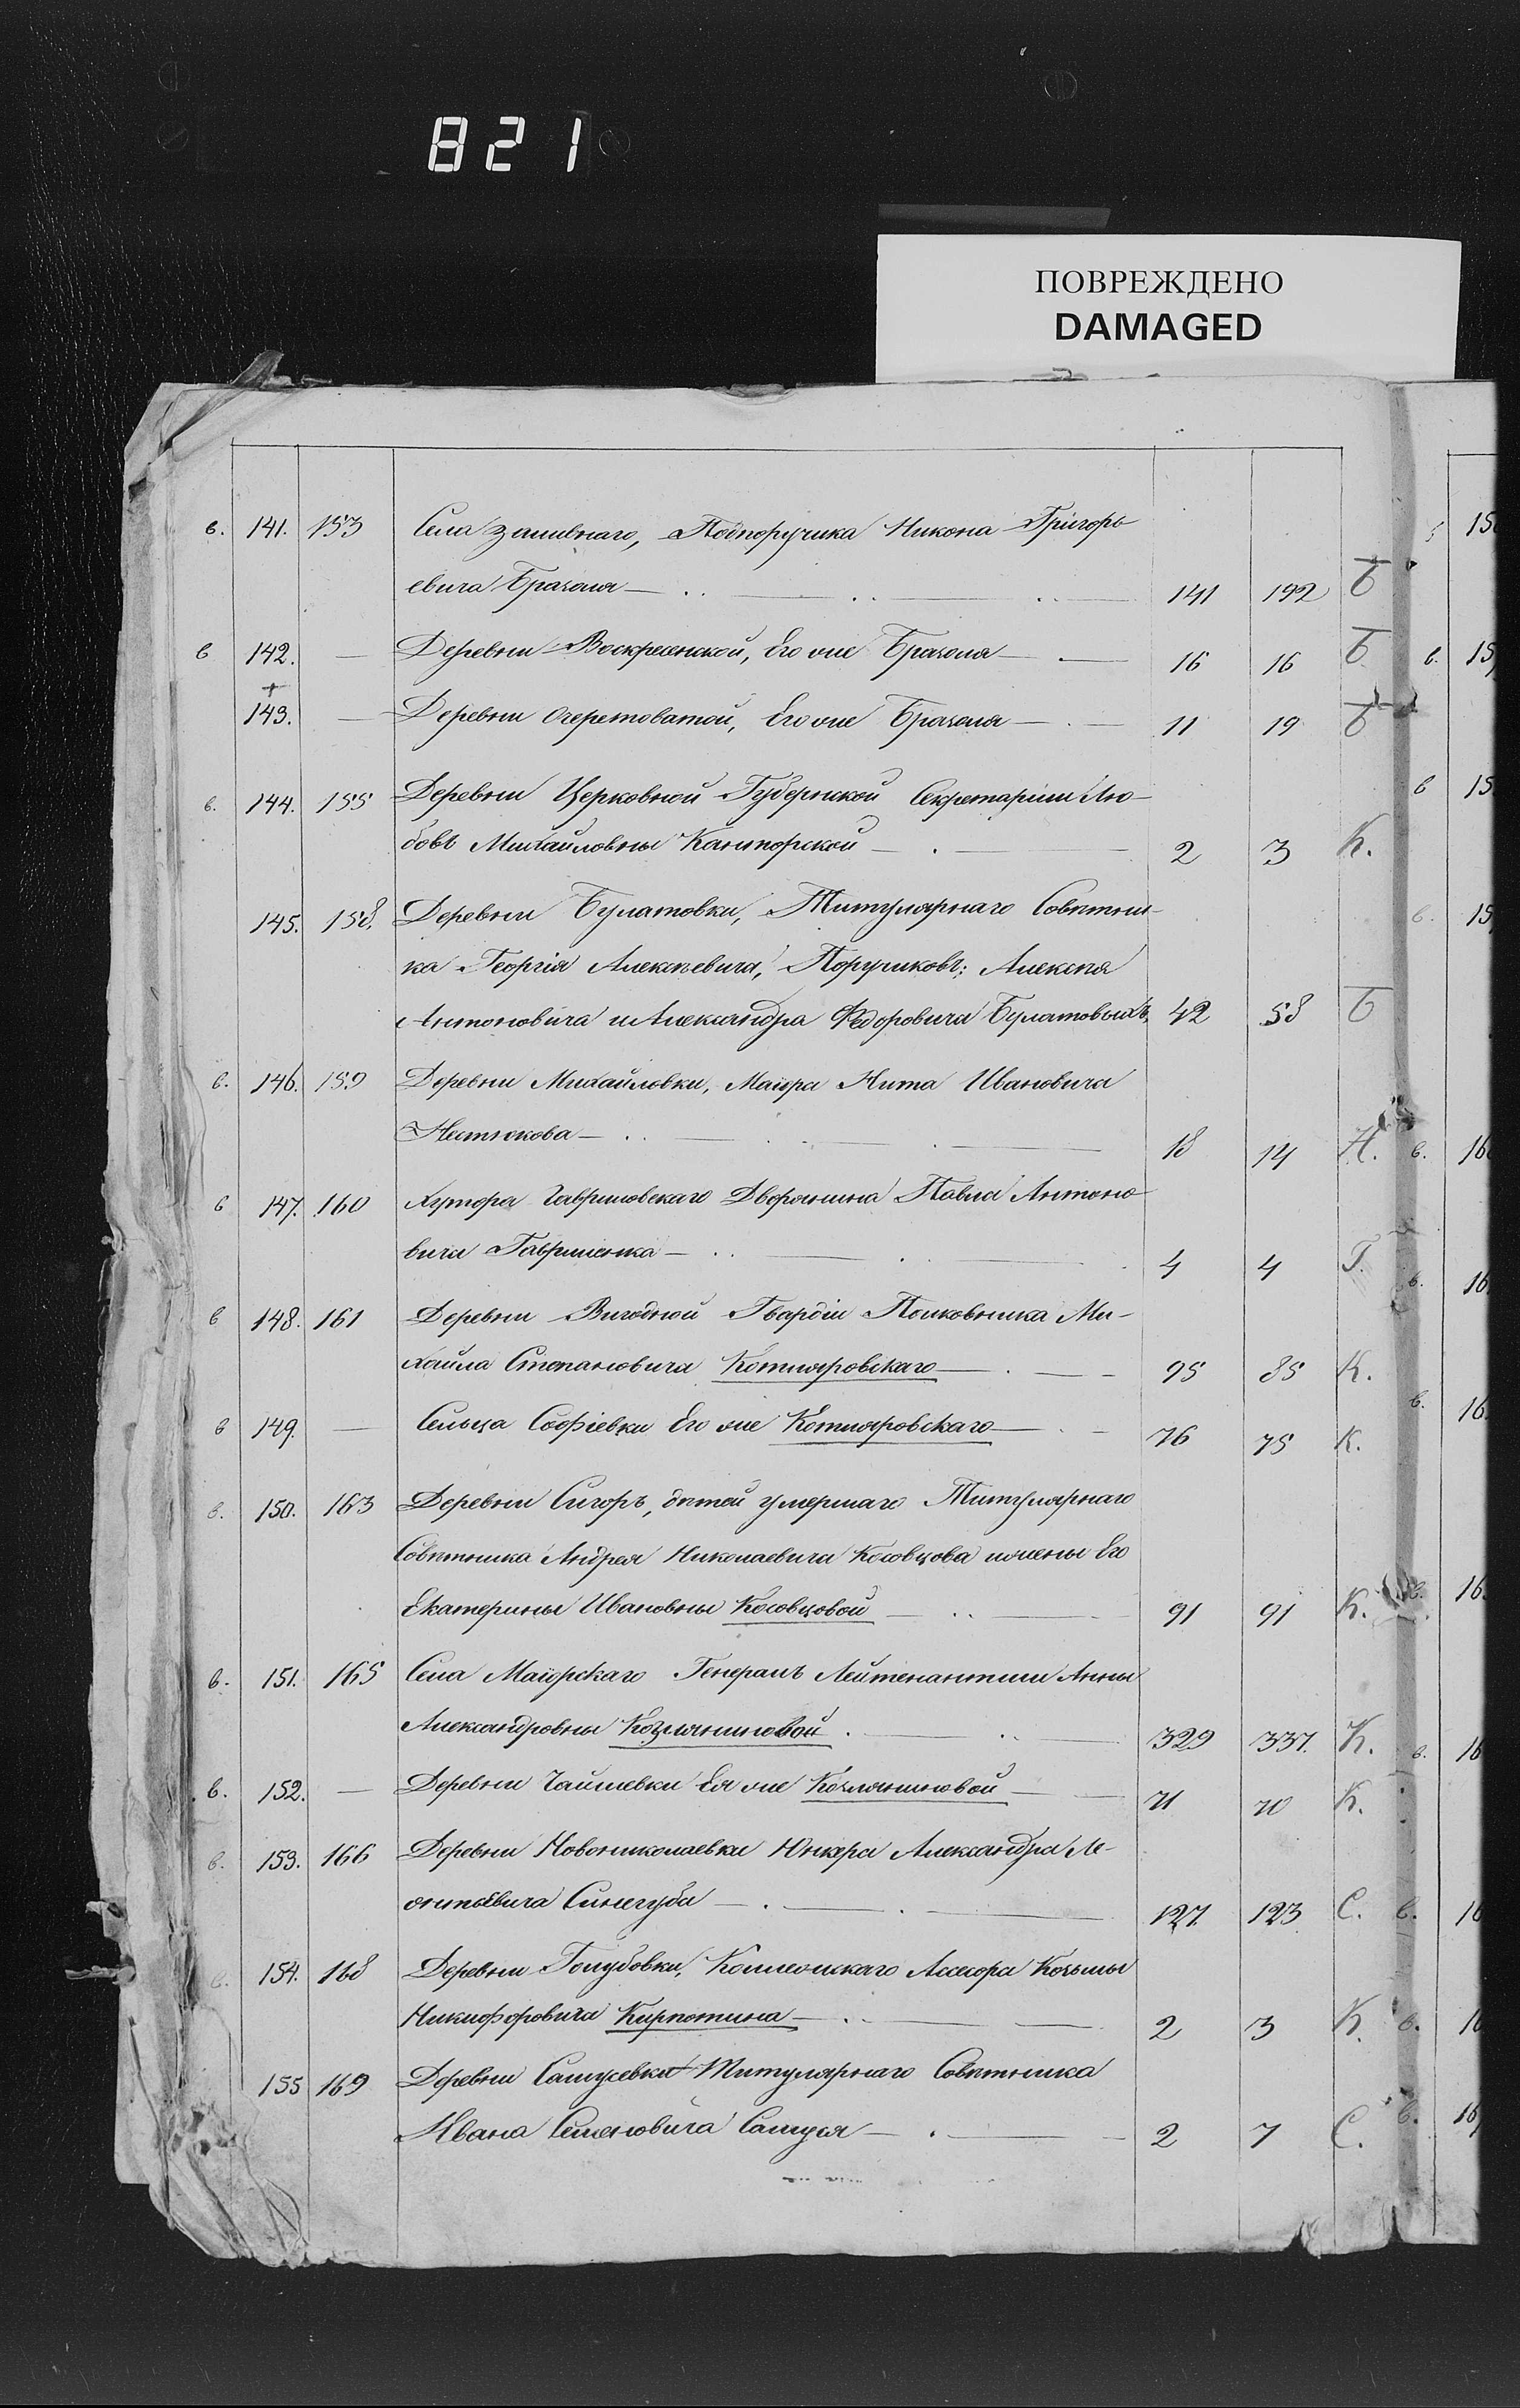 821
ПОВРЕЖДЕНО
DAMAGED
в. 141. 153 Села Заливнаго, Подпоручика Никона Григорь
евича Бразоля 141 192 Б
в 142. — Деревни Воскресенской, Его же Бразоля 16 16 Б
+
143. — Деревни Очеретоватой, Его же Бразоля 11 19 Б
в. 144. 155 Деревни Церковной Губернской Секретарши Лю-
бовь Михайловны Канторской 2 3 К.
145. 158. Деревни Булатовки, Титулярнаго Совѣтни-
ка Георгія Алексѣевича, Поручиковъ: Алексѣя
Антоновича и Александра Федоровича Булатовыхъ 42 58 Б
в. 146. 159 Деревни Михайловки, Маіора Тита Ивановича
Нестюкова 18 14 Н.
в 147. 160 Хутора Гавришовскаго Дворянина Павла Антоно
вича Гавришенка 4 4 Г.
в 148. 161 Деревни Выгодной Гвардіи Полковника Ми-
хайла Степановича Котляровскаго 95 85 К.
в 149. — Сельца Софіевки Его же Котляровскаго 76 75 К.
в. 150. 163 Деревни Сигоръ, дѣтей умершаго Титулярнаго
Совѣтника Андрея Николаевича Косовцова и жены Его
Екатерины Ивановны Косовцовой 91 91 К.
в. 151. 165 Села Маіорскаго Генералъ Лейтенантши Анны
Александровны Козляниновой 329 337. К.
в. 152. — Деревни Чаплиевки Ея же Козляниновой 71 70 К.
в. 153. 166 Деревни Новониколаевки Юнкера Александра Ле-
онтьевича Синегуба 127. 123 С.
в. 154. 168 Деревни Голубовки, Коллежскаго Ассесора Козьмы
Никифоровича Кирпотина 2 3 К.
155 169 Деревни Самусевки Титулярнаго Совѣтника
Ивана Семеновича Самуся 2 7 С.